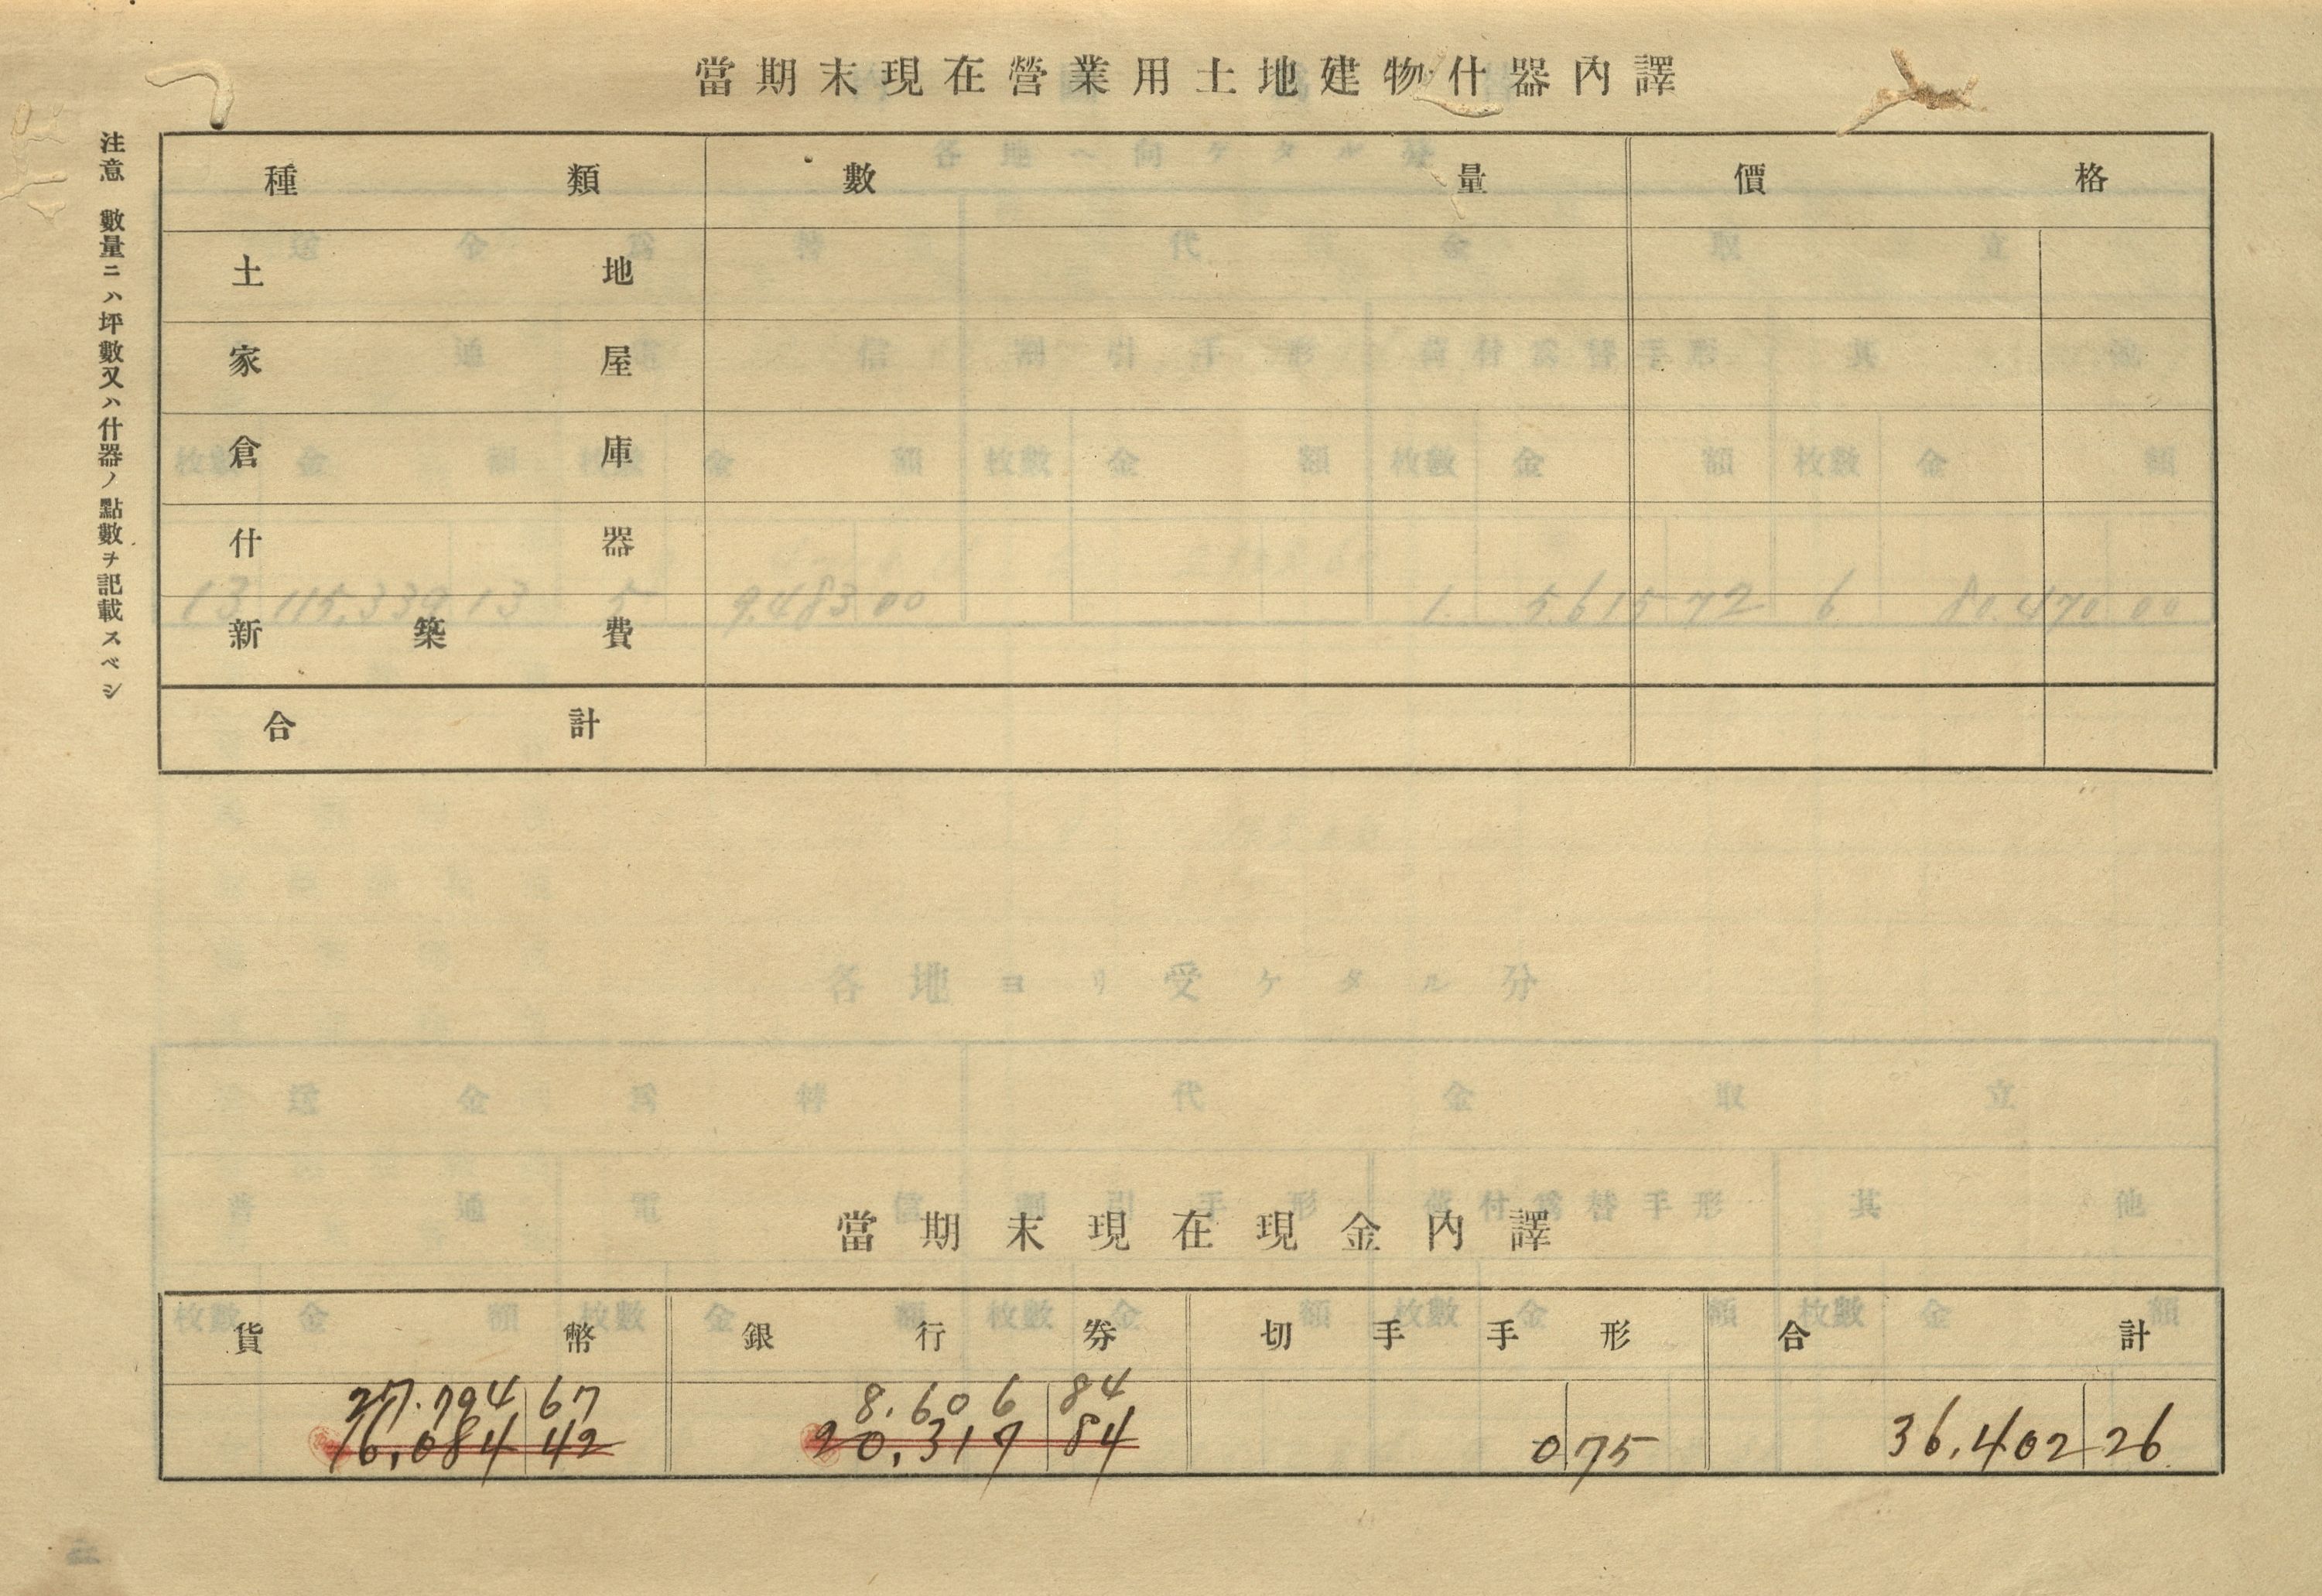 當期末現在營業用土地建物什器內譯
注意 數量ニハ坪數又ハ什器ノ點數ヲ記載スベシ
種類 數量 價格
土地
家屋
倉庫
什器
新築費
合計
當期末現在現金內譯
貨幣 銀行券 切手手形 合計
27.794 67 8.606 84
16,084 42 20,317 84 0 75 36,402 26